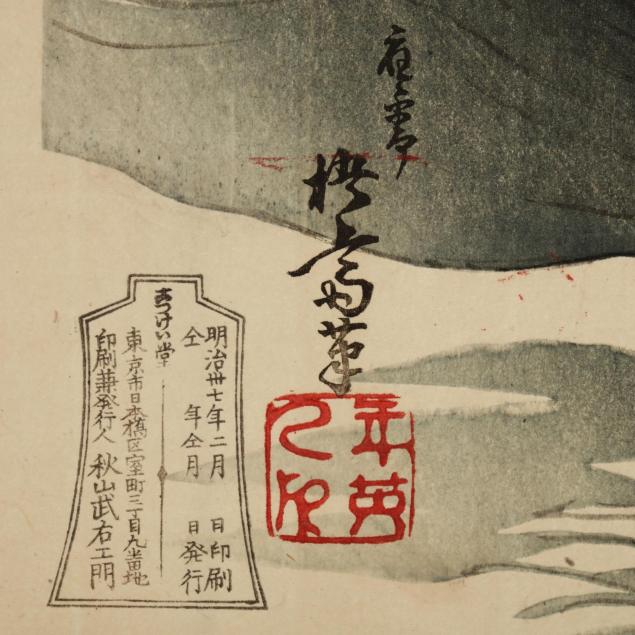 応需
楳斎筆
年英
之印
明治卅七年二月　日印刷
仝　年仝月　日発行
滑けい堂
東京市日本橋区室町三丁目九番地
印刷兼発行人　秋山武右エ門